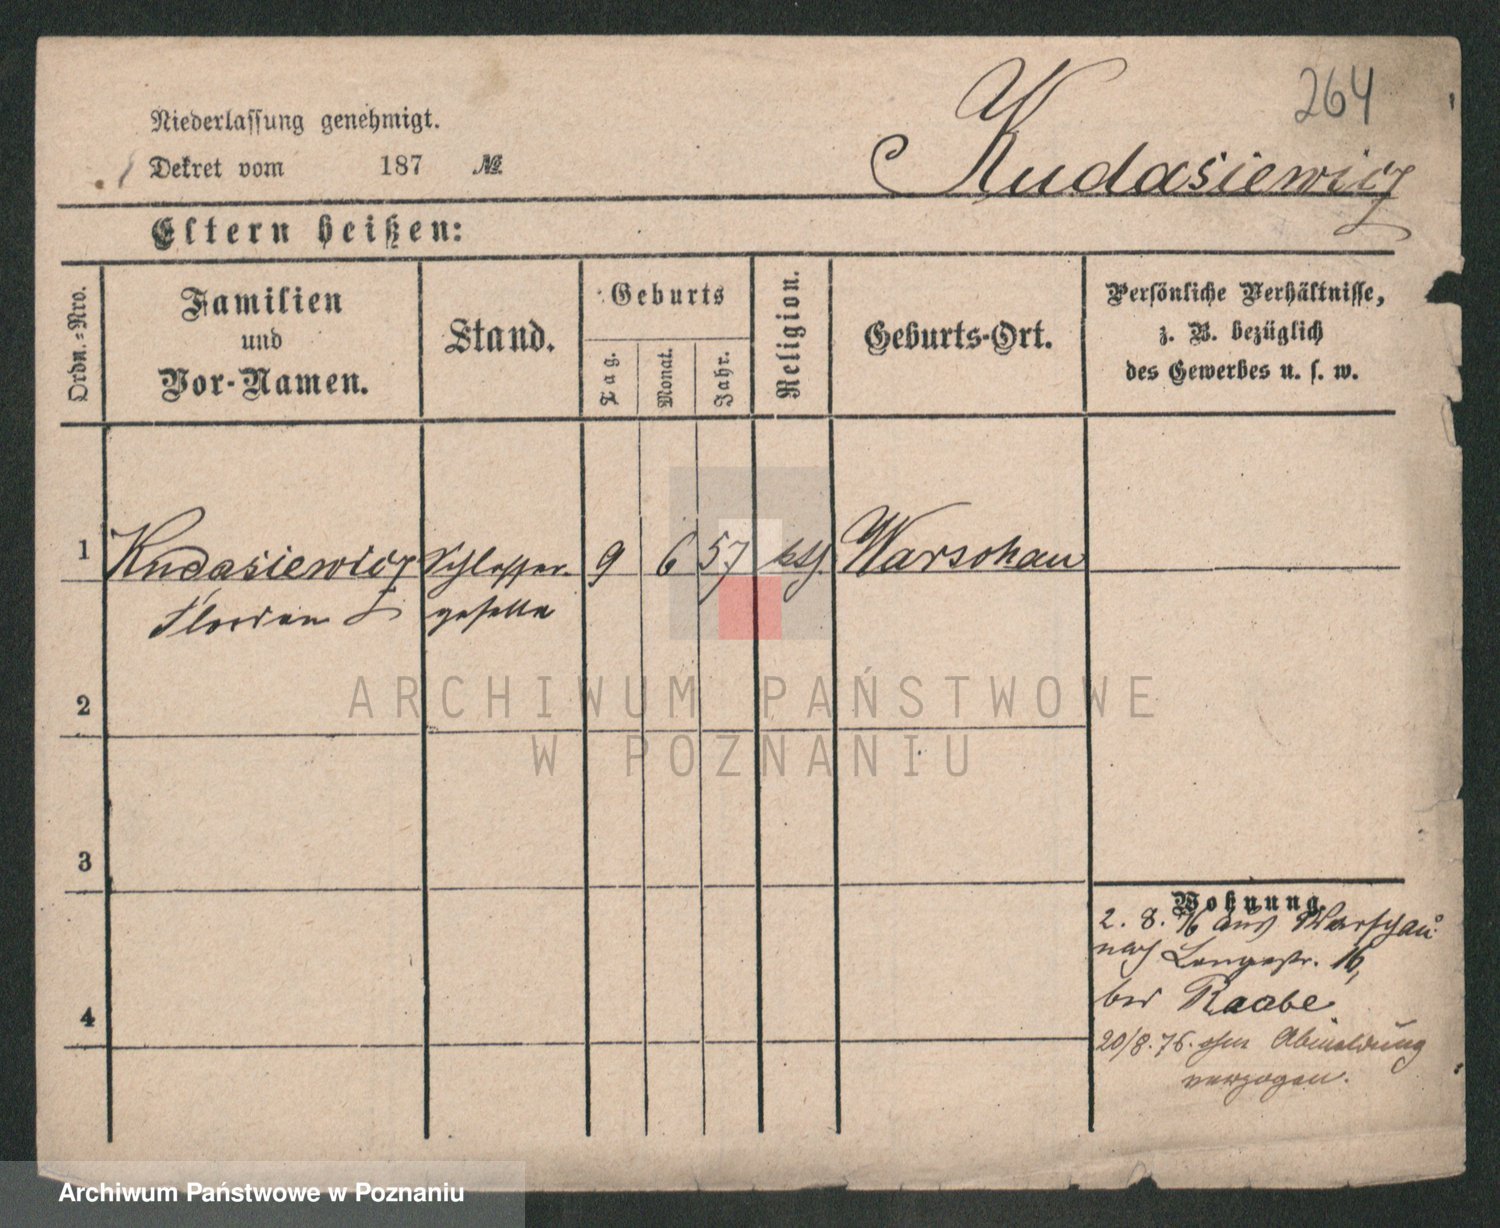 264
Kudasiewicz
Niederlassung genehmigt.
Dekret vom 187 №
Eltern heißen:
Ordn.-Nro.
Familien
und
Vor-Namen.
Stand.
Geburts
Tag.
Monat.
Jahr.
Religion.
Geburts-Ort.
Persönliche Verhältnisse,
z. B. bezüglich
des Gewerbes u. s. w.
1 Kudasiewicz Schlosser- 9 6 57 kth. Warschau
Florian geselle
2
3
4
Wohnung
2. 8. 76 aus Warschau
nach Langestr. 16,
bei Raabe.
20/8. 76. ohne Abmeldung
verzogen.
ARCHIWUM PAŃSTWOWE
W POZNANIU
Archiwum Państwowe w Poznaniu